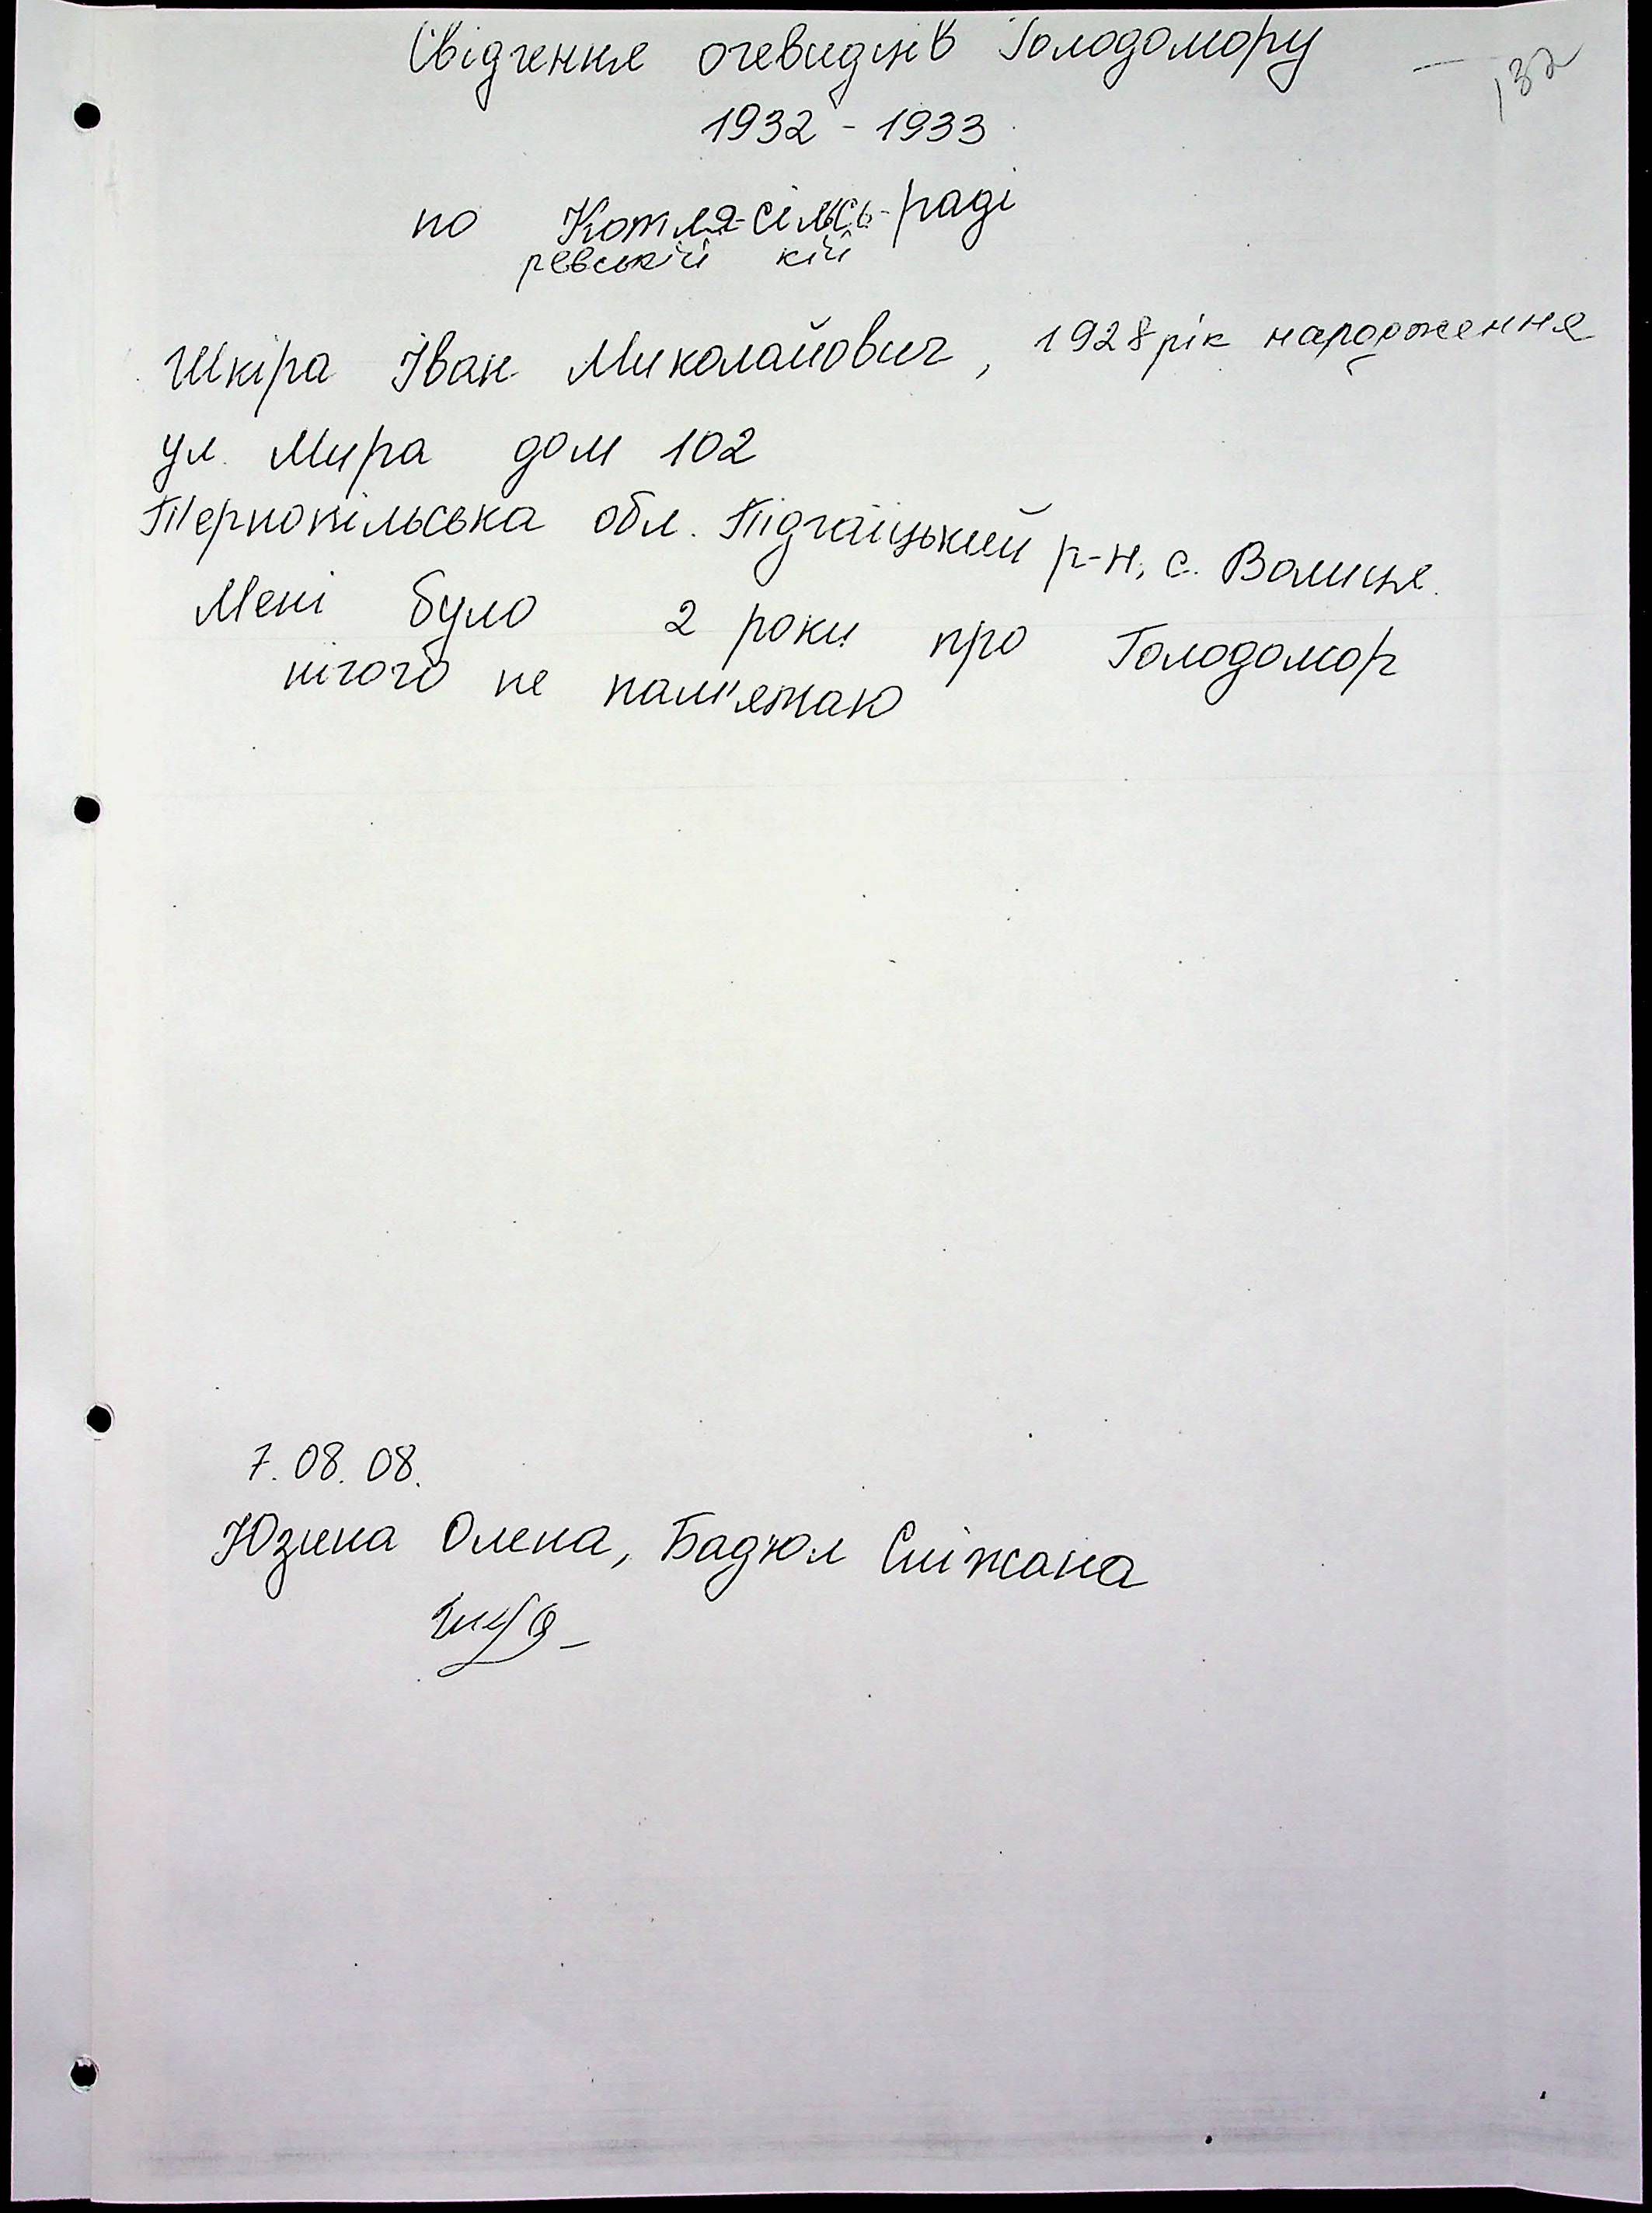 Свідчення очевидців Голодомору
132
1932 - 1933
по Котля-сільсь-раді
ревській кій
Шкіра Іван Миколайович, 1928 рік народження
ул. Мира дом 102
Тернопільська обл. Підгаїцький р-н, с. Волиця.
Мені було 2 роки про Голодомор
нічого не пам'ятаю
7. 08. 08.
Юзина Олена, Бадюл Сніжана